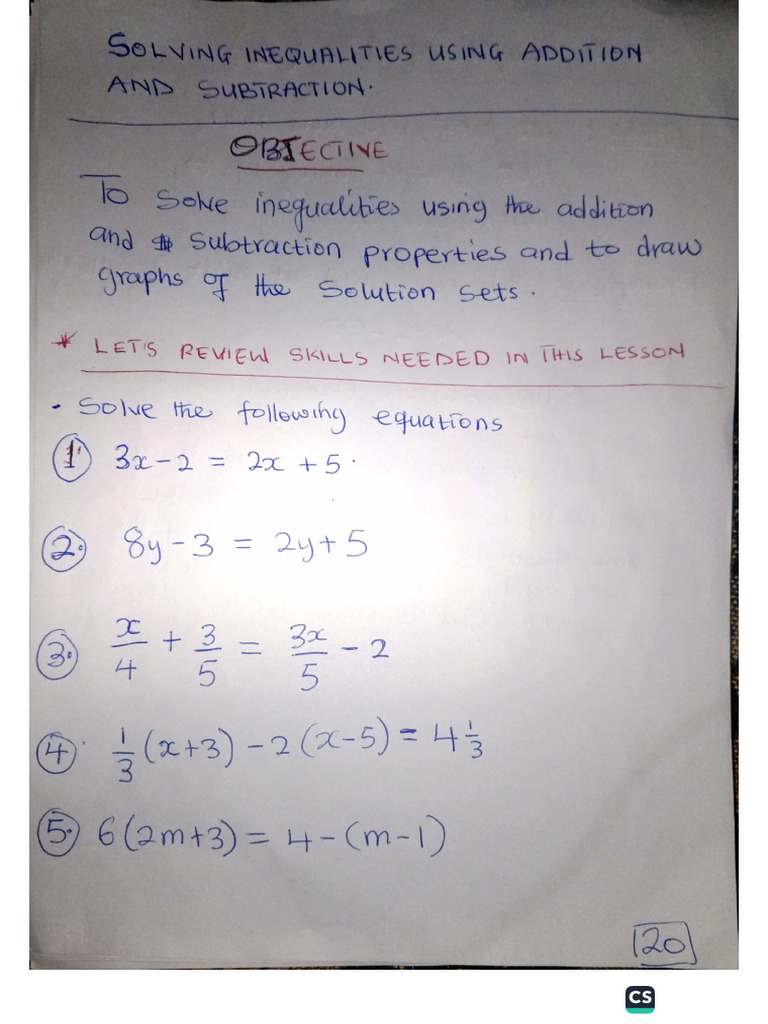 SOLVING INEQUALITIES USING ADDITION
AND SUBTRACTION.
OBJECTIVE
To solve inequalities using the addition
and subtraction properties and to draw
graphs of the solution sets.
* LET'S REVIEW SKILLS NEEDED IN THIS LESSON
• Solve the following equations
1. 3x - 2 = 2x + 5.
2. 8y - 3 = 2y + 5
3. x/4 + 3/5 = 3x/5 - 2
4. 1/3 (x+3) - 2 (x-5) = 4 1/3
5. 6(2m+3) = 4 - (m-1)
20
CS